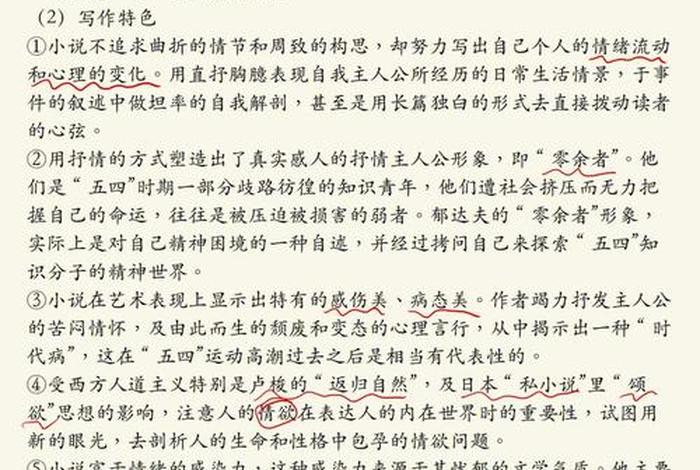 （2）写作特色
①小说不追求曲折的情节和周致的构思，却努力写出自己个人的情绪流动
和心理的变化。用直抒胸臆表现自我主人公所经历的日常生活情景，于事
件的叙述中做坦率的自我解剖，甚至是用长篇独白的形式去直接拨动读者
的心弦。
②用抒情的方式塑造出了真实感人的抒情主人公形象，即“零余者”。他
们是“五四”时期一部分歧路彷徨的知识青年，他们遭社会挤压而无力把
握自己的命运，往往是被压迫被损害的弱者。郁达夫的“零余者”形象，
实际上是对自己精神困境的一种自述，并经过拷问自己来探索“五四”知
识分子的精神世界。
③小说在艺术表现上显示出特有的感伤美、病态美。作者竭力抒发主人公
的苦闷情怀，及由此而生的颓废和变态的心理言行，从中揭示出一种“时
代病”，这在“五四”运动高潮过去之后是相当有代表性的。
④受西方人道主义特别是卢梭的“返归自然”，及日本“私小说”里“颂
欲”思想的影响，注意人的情欲在表达人的内在世界时的重要性，试图用
新的眼光，去剖析人的生命和性格中包孕的情欲问题。
⑤小说富于情绪的感染力，这种感染力来源于其忧郁的文学气质。他主要